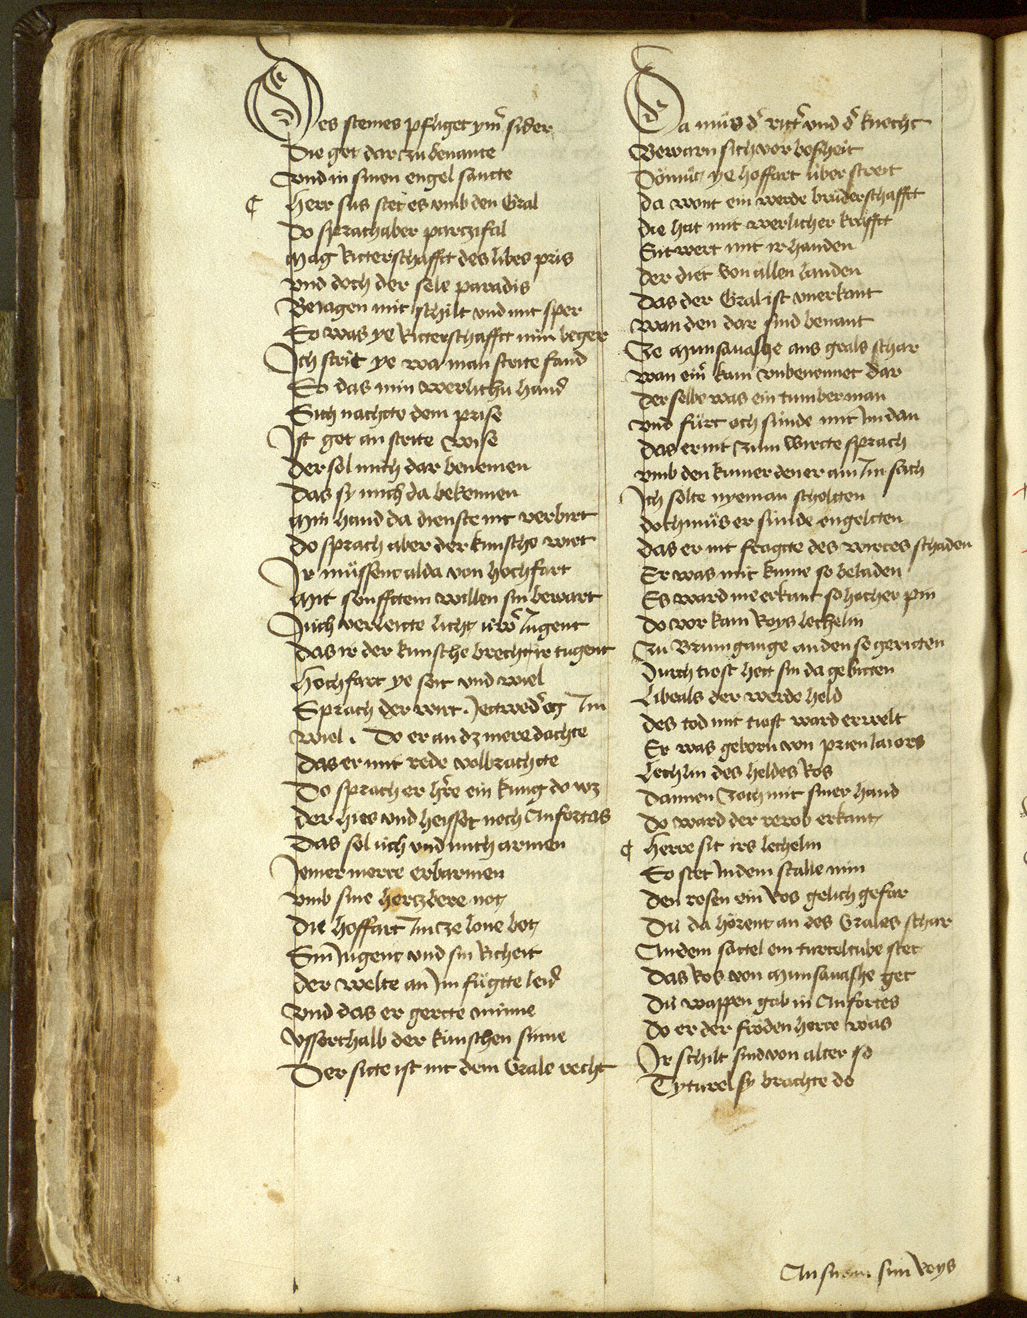 Des steines pfliget ym̃ sider
Die got dar zu benante
Vnd in sinen engel sante
Herr sus stet es vmb den Gral
Do sprach aber parczifal
Mag Ritterschafft des libes pris
vnd doch der sele paradis
Beiagen mit schilt vnd mit sper
So was ye Ritterschafft min beger
Ich streit ye wa man strite fand
So das min werlichu hand
Sich nachete dem prise
Ist got an strite wise
Der sol mich dar benemen
Das sy mich da bekennen
Min hand da dienste nit verbirt
Do sprach aber der kunsche wirt
Ir müssent alda von hochfart
Mit senfftem willen sin bewart
Iuch verleite licht uwr̃ Jugent
Das ir der kunsche brechtir tugent
Hochfart ye seit vnd wiel
Sprach der wirt. Jetwed̃ og Im
wiel. Do er an dz mere dachte
Das er mit rede volbrachte
Do sprach er hr̃e ein kung do wz
der hies vnd heisset noch Anfortas
Das sol uch vnd mich armen
Jemer merre erbarmen
vmb sine herczbere not
Die hoffart Im ze lone bot
Sin Jugent vnd sin Richeit
der welte an Im fügtte leid
vnd das er gerte minne
vsserthalb der kunschen sinne
Der sitte ist nit dem Grale recht
Da müs d̃ ritt̃ vnd d̃ knecht
Bewarn sich vor bosheit
Dömut ye hoffart über streit
da wont ein werde brüderschafft
die hat mit werlicher krafft
Er wert mit ir handen
Der diet von allen landen
Das der Gral ist vnerkant
wan den dar sind benant
Ze Munsauashe ans grals schar
wan ein̄ kam vnbenennet dar
Der selbe was ein tumber man
vnd fürt och sünde mit Im dan
Das er nit zum wirtte sprach
vmb den kumer den er an Im sach
Ich solte nyeman schelten
doch müs er sünde engelten
das er nit fragtte des wirtes schaden
Er was mit kume so beladen
Es ward nie erkant so hocher pin
Do vor kam Roys lechelin
Zu Brumgange an den se geritten
Durch tiost hett sin da gebitten
Libeals der werde held
des tod mit tiost ward erwelt
Er was geborn von prienlaiors
Lechlin des heldes Ros
Dannen zoch mit siner hand
Do ward der rerob erkant
Herre sit irs lechelin
So stet In dem stalle min
den rosen ein Ros gelich gefar
Du da hörent an des Grales schar
An dem sattel ein turteltube stet
Das Ros von Munsauashe get
Du wappen gab in Anfortes
Do er der fröden herre was
Ir schilt sind von alter so
Tyturel sy brachte do